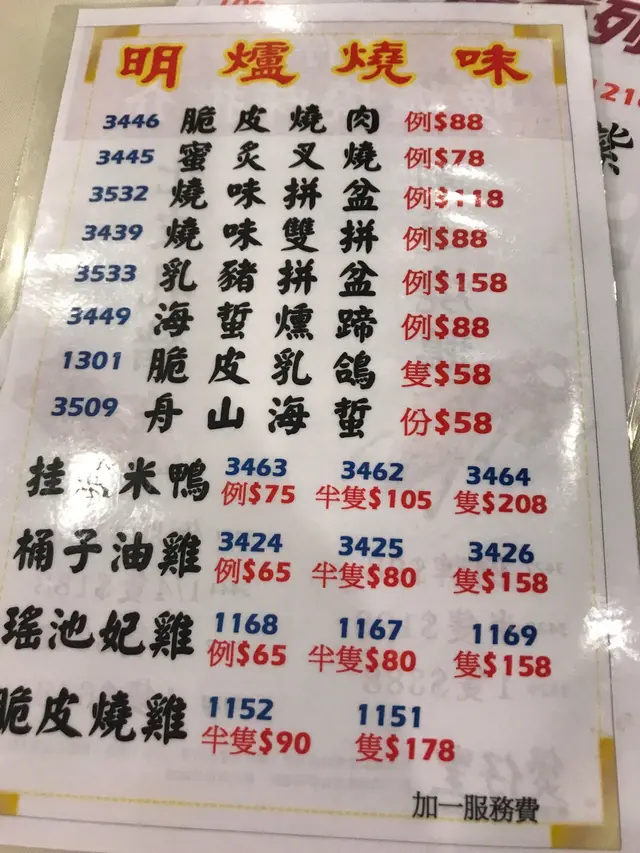 明爐燒味
3446 脆皮燒肉 例$88
3445 蜜炙叉燒 例$78
3532 燒味拼盆 例$118
3439 燒味雙拼 例$88
3533 乳豬拼盆 例$158
3449 海蜇燻蹄 例$88
1301 脆皮乳鴿 隻$58
3509 舟山海蜇 份$58
3463 3462 3464
挂 米鴨 例$75 半隻$105 隻$208
3424 3425 3426
桶子油雞 例$65 半隻$80 隻$158
1168 1167 1169
瑤池妃雞 例$65 半隻$80 隻$158
1152 1151
脆皮燒雞 半隻$90 隻$178
加一服務費